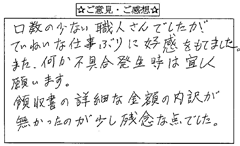 ☆ご意見・ご感想☆
口数の少ない職人さんでしたが
ていねいな仕事ぶりに好感をもてました。
また、何か不具合発生時は宜しく
願います。
領収書の詳細な金額の内訳が
無かったのが少し残念な点でした。